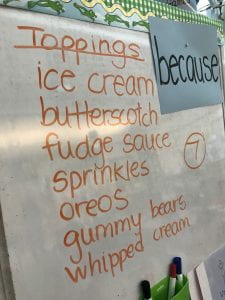 Toppings
because
ice cream
butterscotch
fudge sauce
7
sprinkles
oreos
gummy bears
whipped cream